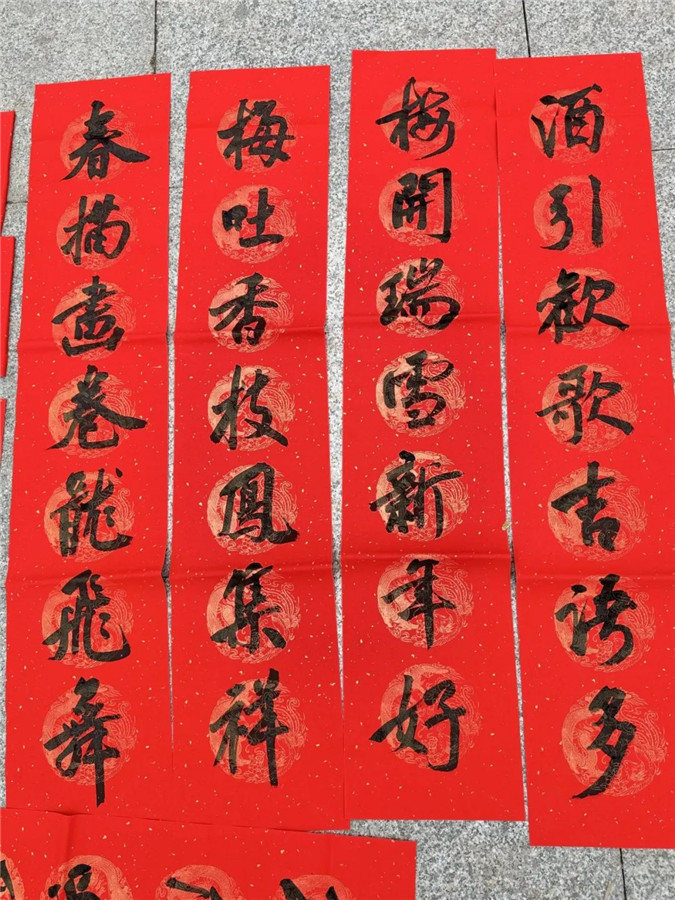 春描畫卷龍飛舞
梅吐香枝鳳集祥
開瑞雪新年好
酒引歡歌吉語多